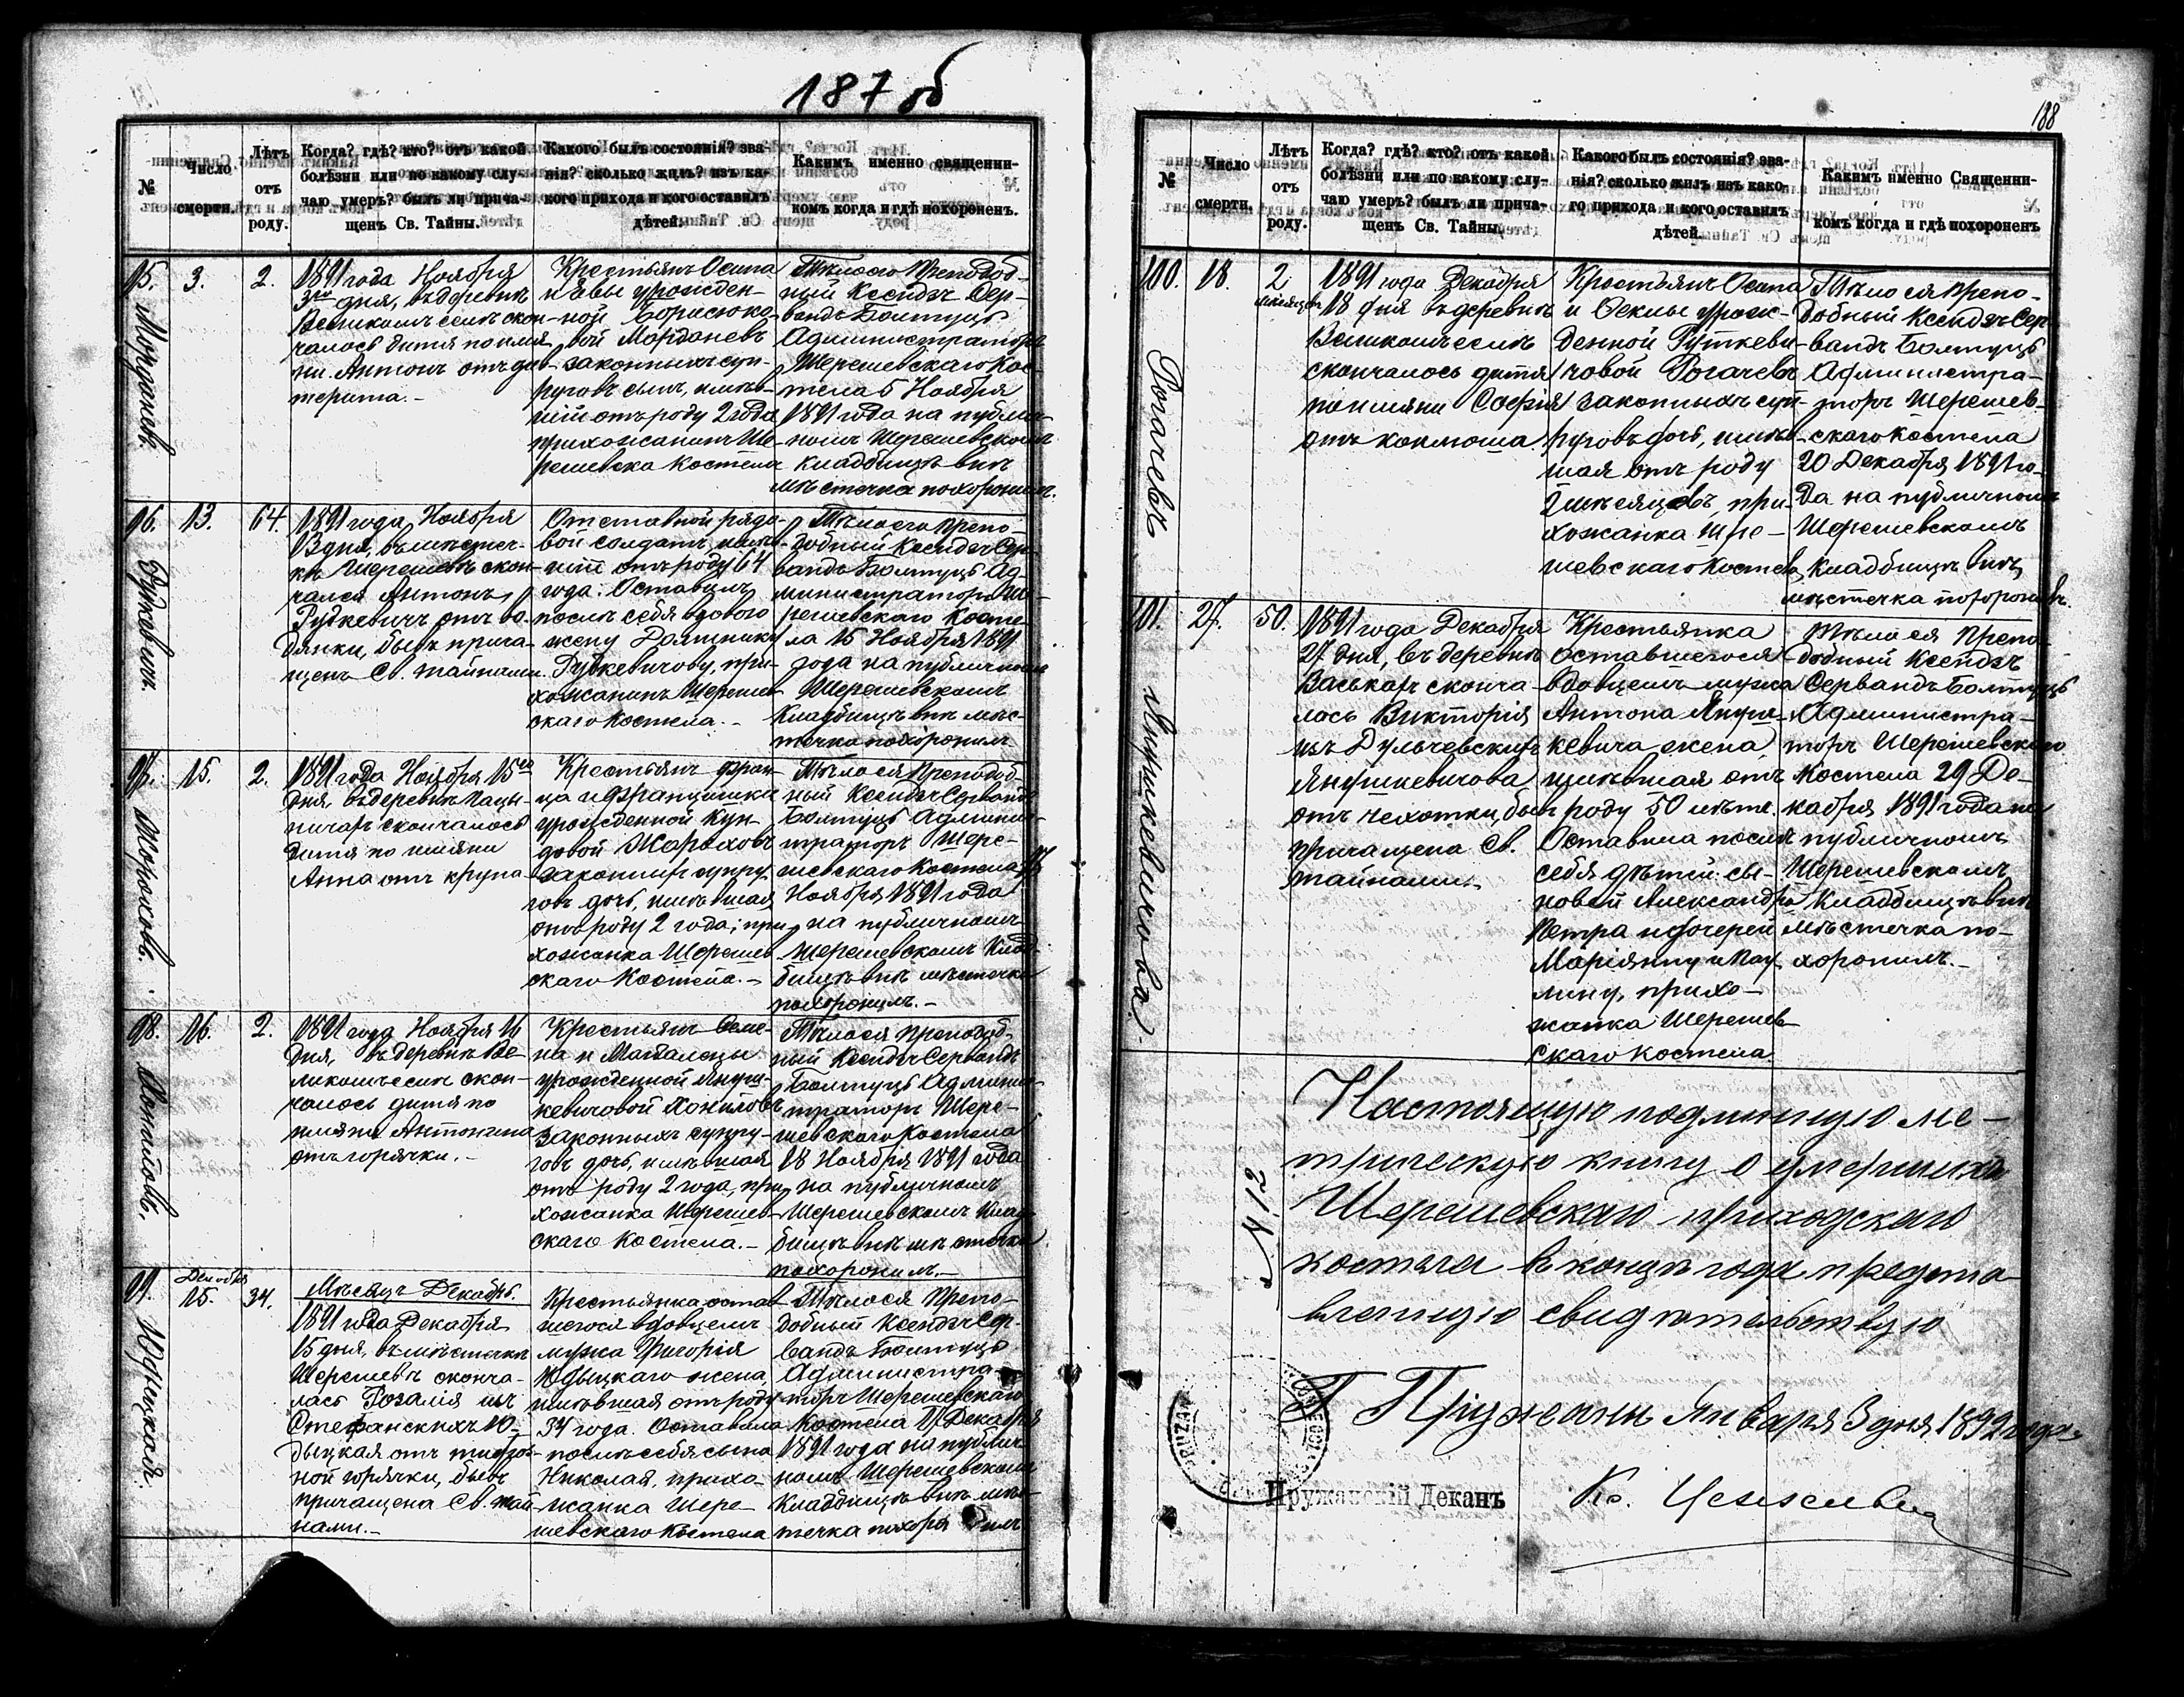 187 об
№
Число смерти.
Лѣтъ отъ роду.
Когда? гдѣ? кто? отъ какой
болѣзни или по какому слу-
чаю умеръ? былъ ли прича-
щенъ Св. Тайны.
Какого былъ состоянія? зва-
нія? сколько жилъ? изъ ка-
кого прихода и кого оставилъ
дѣтей.
Какимъ именно священни-
комъ когда и гдѣ похороненъ.
95.
3.
2.
1891 года Ноября
3го дня, въ деревнѣ
Великомъ селѣ скон-
чалось дитя по имя
ни Антонъ отъ диф-
терита.-
Крестьянъ Осипа
и Евы урожден-
ной Борисюко-
вой
законныхъ суп-
руговъ сынъ, имѣв-
шій отъ роду 2 года
прихожанинъ Ше-
решевска костела
Тѣло его Преподоб-
ный Ксендзъ Сер-
вандъ Болтуць
Администраторъ
Шерешевскаго Кос-
тела 5 Ноября
1891 года на публич-
номъ Шерешевскомъ
Кладбищѣ внѣ
мѣстечка похоронилъ.
96.
13.
64.
Рудкевичъ.
1891 года Ноября
13 дня, въ мѣстеч-
кѣ Шерешевѣ скон-
чался Антонъ
Рудкевичъ отъ во-
дянки, бывъ прича-
щенъ Св. тайнами.
Отставной рядо-
вой солдатъ, имѣв-
шій отъ роду 64
года. Оставилъ
послѣ себя вдовою
жену
Рудкевичову, при-
хожанинъ Шерешев-
скаго костела.-
Тѣло его Препо-
добный Ксендзъ Сер-
вандъ Болтуць Ад-
министраторъ Ше-
решевскаго Косте-
ла 15 Ноября 1891
года на публичномъ
Шерешевскомъ
Кладбищѣ внѣ мѣс-
течка похоронилъ
97.
15.
2.
1891 года Ноября 15го
дня, въ деревнѣ
скончалось
дитя по имяни
Анна отъ крупа
Крестьянъ Фран-
ца и Францишки
урожденной Кун-
довой
законныхъ супру-
говъ дочь, имѣвшая
отъ роду 2 года, при-
хожанка Шерешев-
скаго Костела.-
Тѣло ея Преподоб-
ный Ксендзъ Сервандъ
Болтуць Админис-
траторъ Шере-
шевскаго Костела 17
Ноября 1891 года
на публичномъ
Шерешевскомъ Клад-
бищѣ внѣ мѣстечка
похоронилъ.-
98.
16.
2.
1891 года Ноября 16
дня, въ деревнѣ Ве-
ликомъ селѣ скон-
чалось дитя по
имяни Антонина
отъ горячки.-
Крестьянъ Семе-
на и Магдалены
урожденной Януш-
кевичовой
законныхъ супру-
говъ дочь, имѣвшая
отъ роду 2 года, при-
хожанка Шерешев-
скаго Костела.-
Тѣло ея Преподоб-
ный Ксендзъ Сервандъ
Болтуць Админис-
траторъ Шере-
шевскаго Костела
18 Ноября 1891 года
на публичномъ
Шерешевскомъ Клад-
бищѣ внѣ мѣстечка
похоронилъ.-
99.
Декабря
15.
34.
Юдыцкая.
Мѣсяцъ Декабрь.
1891 года Декабря
15 дня, въ мѣстечкѣ
Шерешевѣ сконча-
лась Розалія изъ
Стефанскихъ Ю-
дыцкая отъ тифоз-
ной горячки, бывъ
причащена Св. тай-
нами.-
Крестьянка остав-
шегося вдовцемъ
мужа Григорія
Юдыцкаго жена,
имѣвшая отъ роду
34 года. Оставила
послѣ себя сына
Николая, прихо-
жанка Шере-
шевскаго костела
Тѣло ея Препо-
добный Ксендзъ Сер-
вандъ Болтуць
Администра-
торъ Шерешевскаго
Костела 17 Декабря
1891 года на публич-
номъ Шерешевскомъ
Кладбищѣ внѣ мѣс-
течка похоронилъ
188
№
Число смерти.
Лѣтъ отъ роду.
Когда? гдѣ? кто? отъ какой
болѣзни или по какому слу-
чаю умеръ? былъ ли прича-
щенъ Св. Тайны.
Какого былъ состоянія? зва-
нія? сколько жилъ изъ како-
го прихода и кого оставилъ
дѣтей.
Какимъ именно Священни-
комъ когда и гдѣ похороненъ
100.
18.
2
мѣсяцевъ
Рогачевъ
1891 года Декабря
18 дня въ деревнѣ
Великомъ селѣ
скончалось дитя
по имяни Софія
отъ коклюша.
Крестьянъ Осипа
и Феклы урож-
денной Руткеви-
човой Рогачевъ
законныхъ суп-
руговъ дочь, имѣв-
шая отъ роду
2 мѣсяцевъ, при-
хожанка Шере-
шевскаго Костела
Тѣло ея Препо-
добный Ксендзъ Сер-
вандъ Болтуць
Администра-
торъ Шерешев-
скаго Костела
20 Декабря 1891 го-
да на публичномъ
Шерешевскомъ
Кладбищѣ внѣ
мѣстечка похоронилъ.
101.
27.
50.
Янушкевичова.
1891 года Декабря
27 дня, въ деревнѣ
Васькахъ сконча-
лась Викторія
изъ Дульчевскихъ
Янушкевичова
отъ чехотки, бывъ
причащена Св.
тайнами.-
Крестьянка
оставшегося
вдовцемъ мужа
Антона Януш-
кевича жена
имѣвшая отъ
роду 50 лѣтъ.
Оставила послѣ
себя дѣтей: сы-
новей Александра
Петра и дочерей
Маріянну и Пау-
лину, прихо-
жанка Шерешев-
скаго костела
Тѣло ея Препо-
добный Ксендзъ
Сервандъ Болтуць
Администра-
торъ Шерешевскаго
Костела 29 Де-
кабря 1891 года на
публичномъ
Шерешевскомъ
Кладбищѣ внѣ
мѣстечка по-
хоронилъ.-
№ 13
Настоящую подлинную ме-
трическую книгу о умершихъ
Шерешевскаго приходскаго
костела въ концѣ года предста-
вленную свидѣтельствую
Г. Пружаны Января 3 дня 1892 года.
Пружанскій Деканъ
Кс.